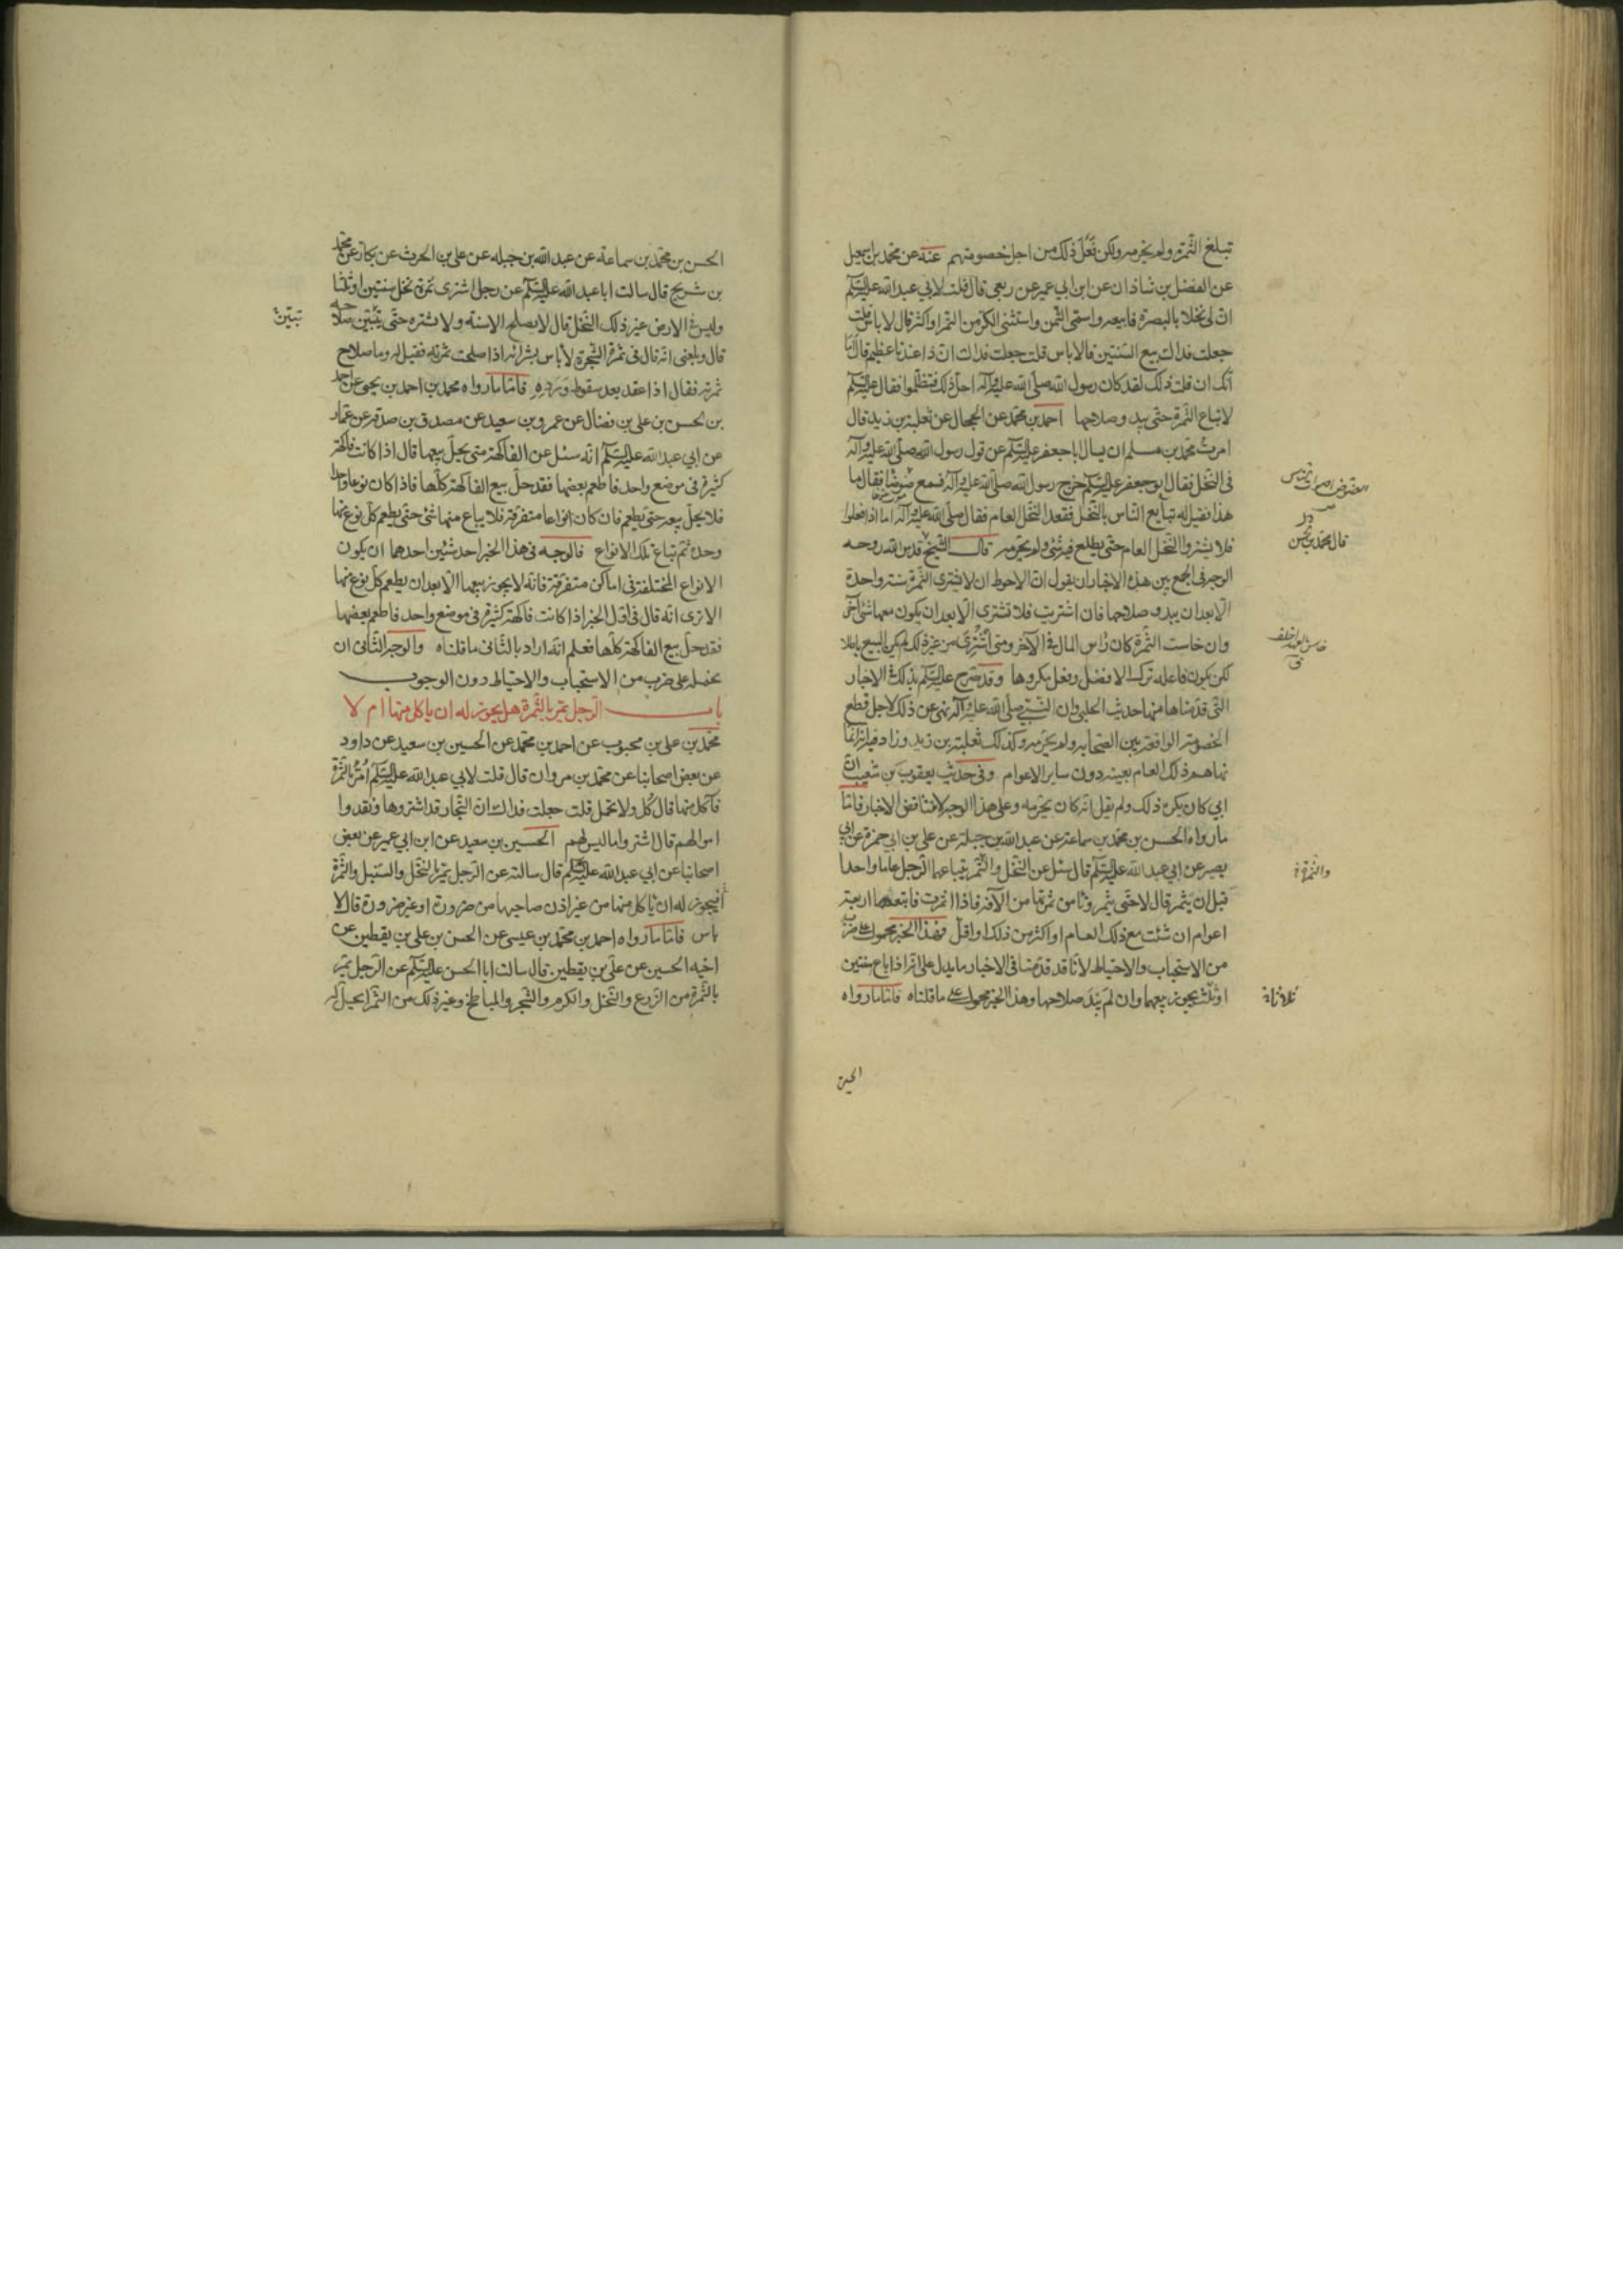 تبلغ الثمرة ولم يحرمه ولكن فعل ذلك من اجل خصومتهم عنه عن محمد بن اسمعيل
عن الفضل بن شاذان عن ابن ابي عمير عن ربعي قال قلت لابي عبد الله عليه السلم
ان لي نخلا بالبصرة فابيعه واسمى الثمن واستثنى الكر من التمر او اكثر قال لا باس قلت
جعلت فداك بيع السنتين قال لا باس قلت جعلت فداك ان ذا عندنا عظيم قال اما
انك ان قلت ذلك لقد كان رسول الله صلى الله عليه وآله احل ذلك فتظلموا فقال عليه السلم
لا تباع الثمرة حتى يبدو صلاحها احمد بن محمد عن الحجال عن ثعلبة بن زيد قال
امرت محمد بن مسلم ان يسال ابا جعفر عليه السلم عن قول رسول الله صلى الله عليه وآله
في النخل فقال ابو جعفر عليه السلم خرج رسول الله صلى الله عليه وآله فسمع ضوضا فقال ما
هذا فقيل له تبايع الناس بالنخل فقعد النخل العام فقال صلى الله عليه وآله اما اذا فعلوا
فلا يشتروا النخل العام حتى يطلع فيه شئ ولم يحرمه قال الشيخ قدس الله روحه
الوجه في الجمع بين هذه الاخبار ان يقول ان الاحوط ان لا يشترى الثمرة سنة واحدة
الا بعد ان يبدو صلاحها فان اشتريت فلا تشترى الا بعد ان يكون معها شئ آخر
وان خاست الثمرة كان راس المال في الآخر ومتى اشترى من غير ذلك لم يكن البيع باطلا
لكن يكون فاعله ترك الافضل وفعل مكروها وقد صرح عليه السلم بذلك في الاخبار
التي قدمناها منها حديث الحلبي وان النبي صلى الله عليه وآله نهى عن ذلك لاجل قطع
الخصومة الواقعة بين الصحابه ولم يحرمه وكذلك ثعلبة بن زيد وزاد فيه انه انما
نهاهم ذلك العام بعينه دون ساير الاعوام وفي حديث يعقوب بن شعيب ان
ابي كان يكره ذلك ولم يقل انه كان يحرمه وعلى هذا الوجه لا تتناقض الاخبار فاما
ما رواه الحسن بن محمد بن سماعة عن عبد الله بن جبلة عن علي بن ابي حمزة عن ابي
بصير عن ابي عبد الله عليه السلم قال سئل عن النخل والثمر يبتاعها الرجل عاما واحدا
قبل ان يثمر قال لا حتى يثمر وتامن ثمرتها من الآفة فاذا اثمرت فابتعها اربعة
اعوام ان شئت مع ذلك العام او اكثر من ذلك او اقل فهذا الخبر محمول على ضرب
من الاستحباب والاحتياط لانا قد قدمنا في الاخبار ما يدل على انه اذا باع سنتين
او ثلث يجوز بيعها وان لم يبد صلاحها وهذا الخبر محمول على ما قلناه فاما ما رواه
قال محمد بن الحسن
والثمرة
ثلاثا
الحسن
الحسن بن محمد بن سماعة عن عبد الله بن جبله عن علي بن الحرث عن بكار عن محمد
بن شريح قال سالت ابا عبد الله عليه السلم عن رجل اشترى ثمرة نخل سنتين او ثلثا
وليس في الارض غير ذلك النخل قال لا يصلح الا سنة ولا تشتره حتى يتبين صلاحه
قال وبلغنى انه قال في ثمرة الشجرة لا باس بشرائه اذا صلحت ثمرته فقيل له وما صلاح
ثمرته فقال اذا عقد بعد سقوط ورده فاما ما رواه محمد بن احمد بن يحيى عن احمد
بن الحسن بن علي بن فضال عن عمرو بن سعيد عن مصدق بن صدقة عن عمار
عن ابي عبد الله عليه السلم انه سئل عن الفاكهة متى يحل بيعها قال اذا كانت فاكهة
كثيرة في موضع واحد فاطعم بعضها فقد حل بيع الفاكهة كلها فاذا كان نوعا واحدا
فلا يحل بيعه حتى يطعم فان كان انواعا متفرقة فلا يباع منها شئ حتى يطعم كل نوع منها
وحده ثم تباع تلك الانواع فالوجه في هذا الخبر احد شيئين احدهما ان يكون
الانواع المختلفة في اماكن متفرقة فانه لا يجوز بيعها الا بعد ان يطعم كل نوع منها
الا ترى انه قال في اول الخبر اذا كانت فاكهة كثيرة في موضع واحد فاطعم بعضها
فقد حل بيع الفاكهة كلها فعلم انه اراد بالثاني ما قلناه والوجه الثاني ان
نحمله على ضرب من الاستحباب والاحتياط دون الوجوب
باب الرجل يمر بالثمرة هل يجوز له ان ياكل منها ام لا
محمد بن علي بن محبوب عن احمد بن محمد عن الحسين بن سعيد عن داود
عن بعض اصحابنا عن محمد بن مروان قال قلت لابي عبد الله عليه السلم امر بالثمرة
فآكل منها قال كل ولا تحمل قلت جعلت فداك ان التجار قد اشتروها ونقدوا
اموالهم قال اشتروا ما ليس لهم الحسين بن سعيد عن ابن ابي عمير عن بعض
اصحابنا عن ابي عبد الله عليه السلم قال سالته عن الرجل يمر بالنخل والسنبل والثمرة
أفيجوز له ان ياكل منها من غير اذن صاحبها من ضرورة او غير ضرورة قال لا
باس فاما ما رواه احمد بن محمد بن عيسى عن الحسن بن علي بن يقطين عن
اخيه الحسين عن علي بن يقطين قال سالت ابا الحسن عليه السلم عن الرجل يمر
بالثمرة من الزرع والنخل والكرم والشجر والمباطخ وغير ذلك من الثمر ايحل له
تبتين